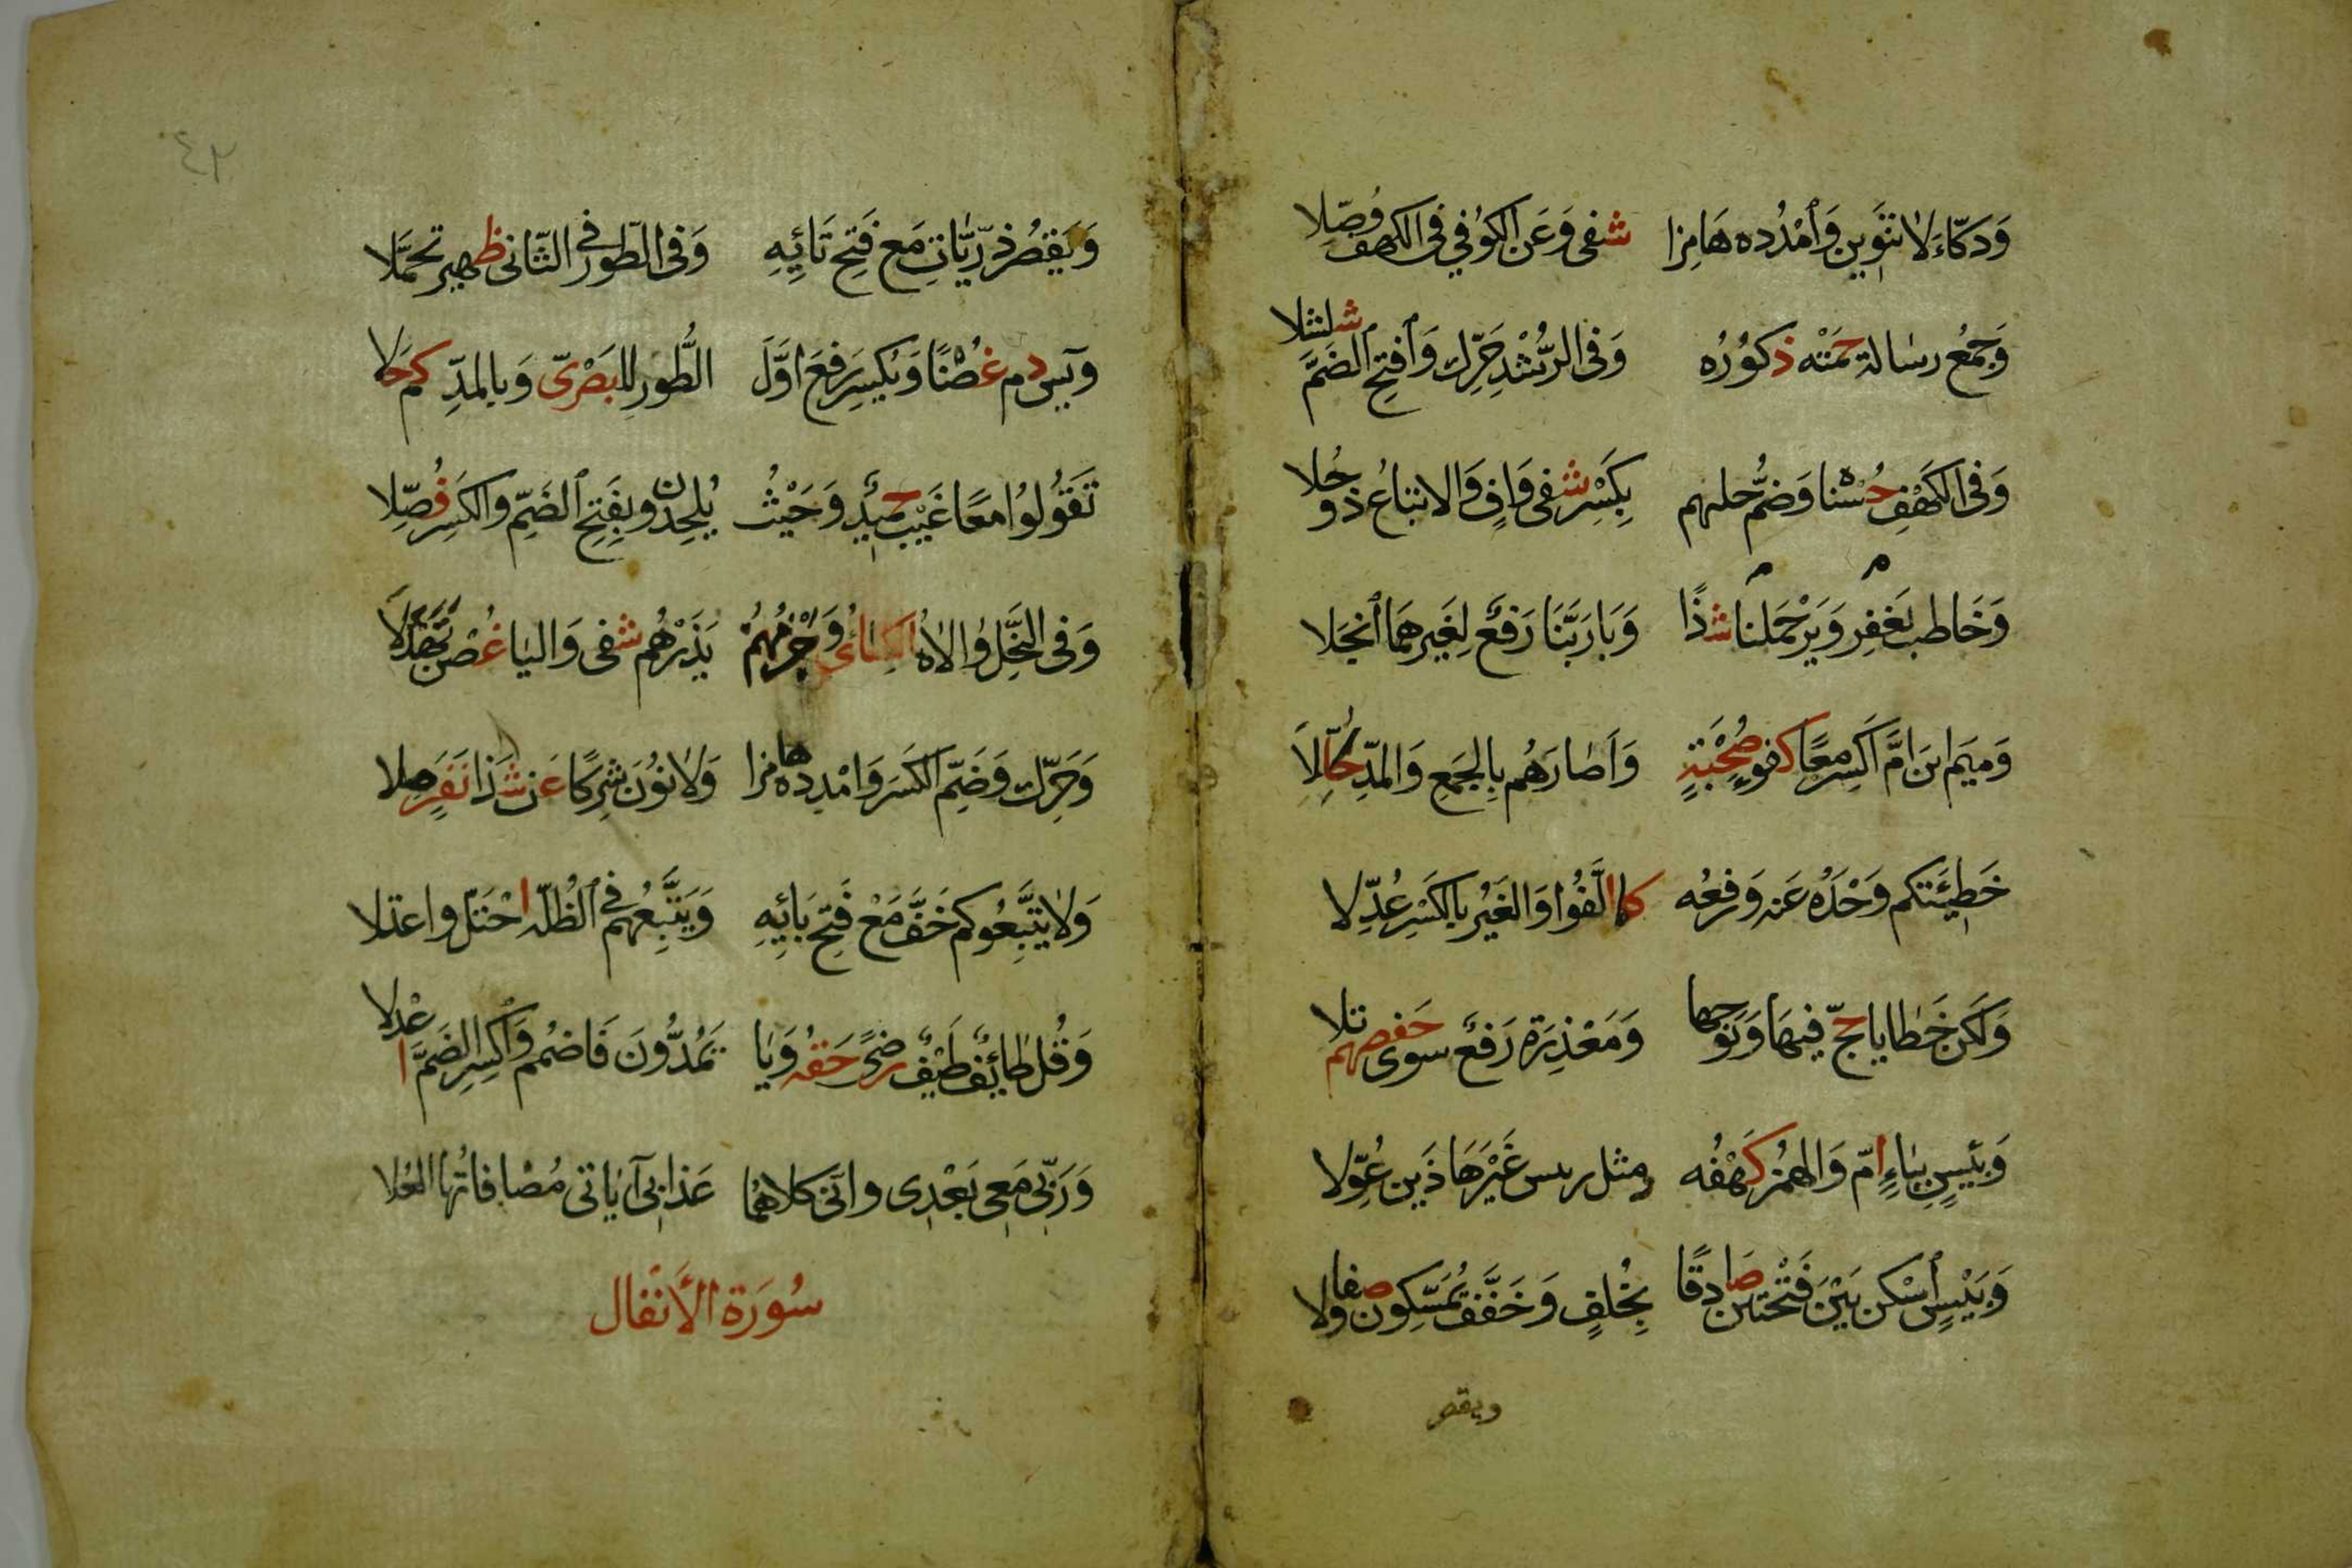 وَدَكَّاءَ لَا تَنْوِينَ وَٱمْدُدْه هَامِزا شفى وَعَن الكُوفي في الكهف وُصِّلا
وَجَمْعُ رسالة حَمَتْه ذكُورُه وَفى الرُّشْدِ حَرِّك وَٱفتحِ ٱلضَّمَّ شلشلا
وَفى الكَهْفِ حُسْنا وَضمُّ حليهم بِكَسْرِ شفى وَافٍ وَالاتباعُ ذو حُلا
وَخَاطب يَغفِر وَيَرْحَملنا شذًا وَبَا رَبَّنَا رَفعٌ لِغَيرِهمَا ٱنجَلا
م م
وَميمَ ابنَ امَّ اَكسِر معًا كفؤَ صُحْبَةٍ وَآصَارَهُم بِالجَمعِ وَالمدّ كُلِّلاَ
خَطِيئَتكم وَحِّدْهُ عَنه وَرفعُه كما اَلَّفُوا وَالغَيْرُ بالكَسْرِ عُدِّلا
وَلَكن خَطَايا حجّ فيهَا وَنُوحِها وَمَعْذِرَة رَفعٌ سوى حَفصهم تلا
وَبِيسٍ بيَاءٍ امّ وَالهمْز كَهْفُه ومثل رىىس غَيْرُ هَا ذَين عُوِّلا
وَبَيْئسٍ ٱسْكن بَيْنَ فَتْحَتَين صَادِقًا بِخُلفٍ وَخَفِّف يُمَسِّكون صفا ولا
ويقصر
٤٢
وَيَقصُرُ ذرِّيَّاتِ مَع فَتحِ تَائِهِ وَفى الطّور في الثَّانى ظهير تحمَّلا
ويٰسٓ دم غُصْنًا وَيُكسِر رَفعَ اوَّلَ الطُّورِ للبَصْرىّ وَبالمدِّ كم حَلا
تَقُولُوا معًا غَيْب حميْدٌ وَحَيْثُ يُلحِدُون بفَتحِ ٱلضَمّ وَالكَسرِ فُصِّلا
وَفى النَّحْل وَالاهُ الكِسَائىُ وَجَزمُهمُ يَذَرْهُم شفى وَاليَا غُصْن تَهَدَّلَا
وَحَرِّك وَضمّ الكَسرَ وَامْدده هامزا وَلا نُونَ شِركًا عَن شذا نَفَرٍ مِلا
وَلا يَتَّبِعُوكم خَفَّ مَعْ فَتحِ بَائِهِ وَيَتَّبِعُهم في الظُلّة احْتَلّ واعتلا
وَقُل طائِفٌ طَيْفٌ رضىً حَقهُ وَيَا يَمُدُّونَ فَاضمُم وَٱكسِر الضَمَّ اعْدلا
وَرَبّى مَعى بَعْدِى وانّى كلاهُمَا عَذابى آيَاتى مُضافاتُها العُلا
سُورَة الأَنفَال